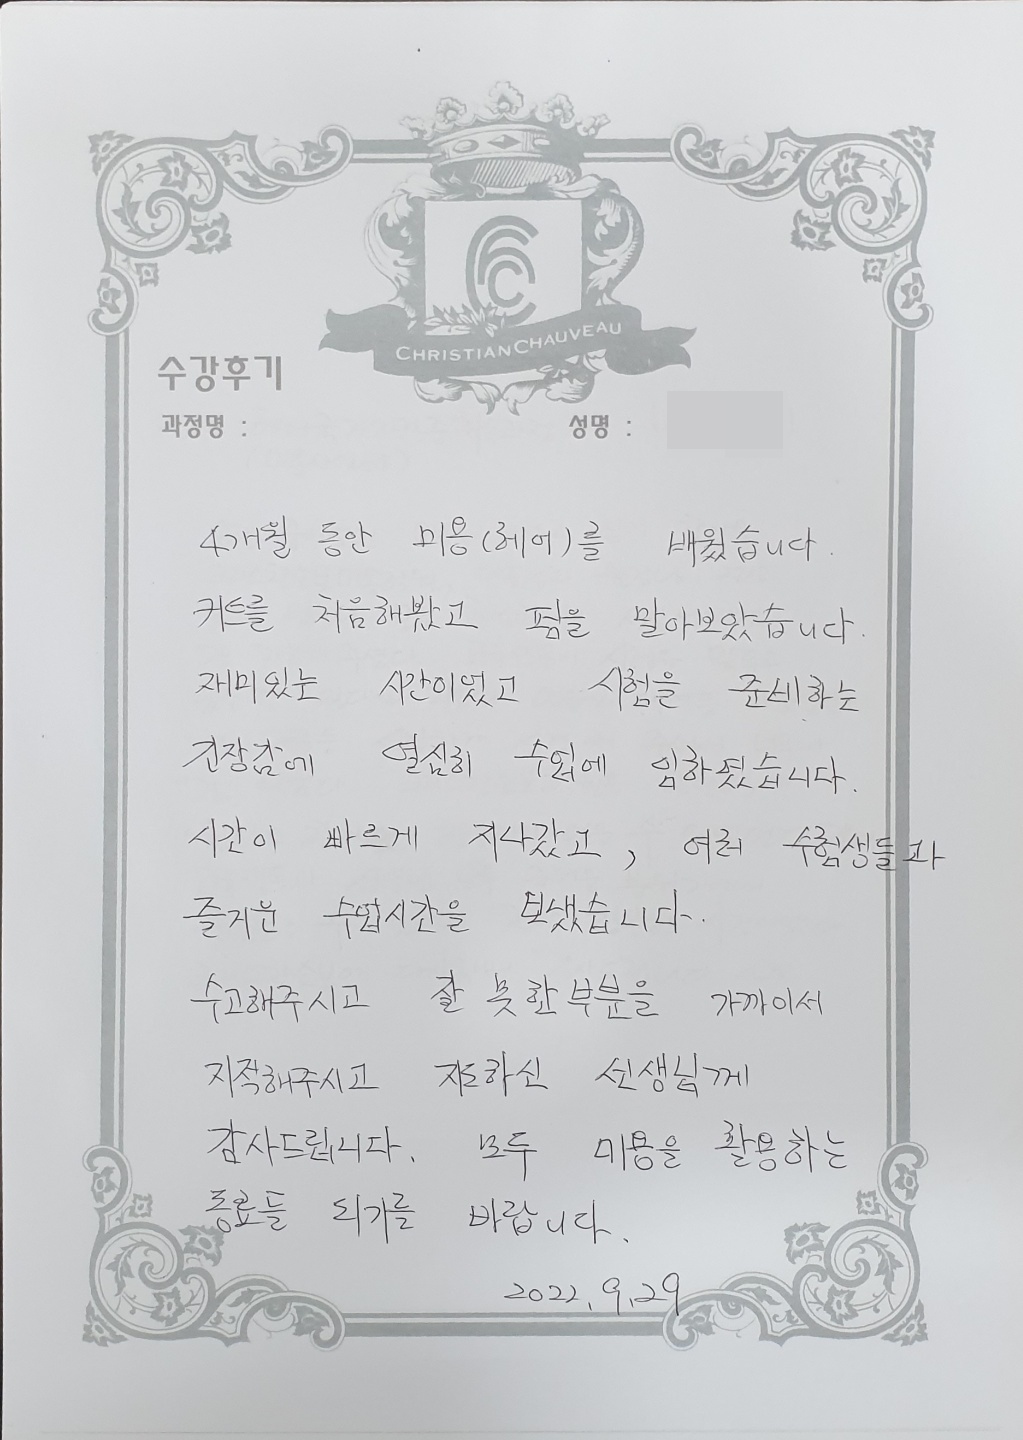 CHRISTIAN CHAUVEAU
수강후기
과정명 : 성명 :
4개월 동안 미용(헤어)를 배웠습니다.
커트를 처음해봤고 펌을 말아보았습니다.
재미있는 시간이었고 시험을 준비하는
긴장감에 열심히 수업에 임하였습니다.
시간이 빠르게 지나갔고, 여러 수험생들과
즐거운 수업시간을 보냈습니다.
수고해주시고 잘 못한 부분을 가까이서
지적해주시고 지도하신 선생님께
감사드립니다. 모두 미용을 활용하는
동료들 되기를 바랍니다.
2022.9.29